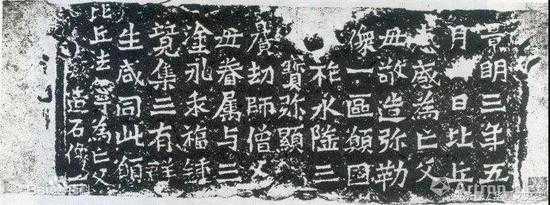 景明三年五
月日比丘
惠感為亡父
母敬造弥勒
像一區願國
祚永隆三
寶弥顯
曠劫師僧父
母眷属与三
塗永乖福鍾
竟集三有群
生咸同此願
比丘法寧為亡父
造石像一